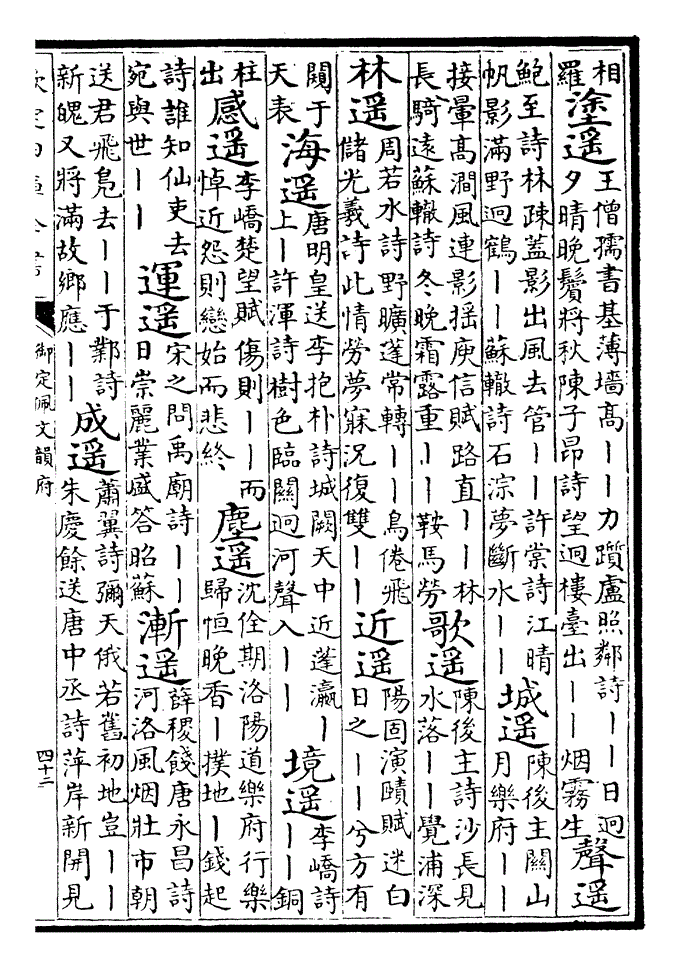 相
羅
塗遥
王僧孺書基薄墻髙丨丨力躓盧照鄰詩丨丨日迥
夕晴晚鬢將秋陳子昂詩望迥樓臺出丨丨烟霧生
聲遥
鮑至詩林疎蓋影出風去管丨丨許棠詩江晴
帆影滿野迥鶴丨丨蘇轍詩石淙夢斷水丨丨
城遥
陳後主關山
月樂府丨丨
接暈髙澗風連影揺庾信賦路直丨丨林
長騎遠蘇轍詩冬晚霜露重丨丨鞍馬勞
歌遥
陳後主詩沙長見
水落丨丨覺浦深
林遥
周若水詩野曠蓬常轉丨丨鳥倦飛
儲光羲詩此情勞夢寐況復雙丨丨
近遥
陽固演賾賦迷白
日之丨丨兮方有
闕于
天表
海遥
唐明皇送李抱朴詩城闕天中近蓬瀛丨
上丨許渾詩樹色臨關迥河聲入丨丨
境遥
李嶠詩
丨丨銅
柱
出
感遥
李嶠楚望賦傷則丨丨而
悼近怨則戀始而悲終
塵遥
沈佺期洛陽道樂府行樂
歸恒晚香丨撲地丨錢起
詩誰知仙吏去
宛與世丨丨
運遥
宋之問禹廟詩丨丨
日崇麗業盛答昭蘇
漸遥
薛稷餞唐永昌詩
河洛風烟壯市朝
送君飛鳬去丨丨于鄴詩
新魄又將滿故鄉應丨丨
成遥
蕭翼詩彌天俄若舊初地豈丨丨
朱慶餘送唐中丞詩萍岸新開見
欽定四庫全書
御定佩文韻府
四十二